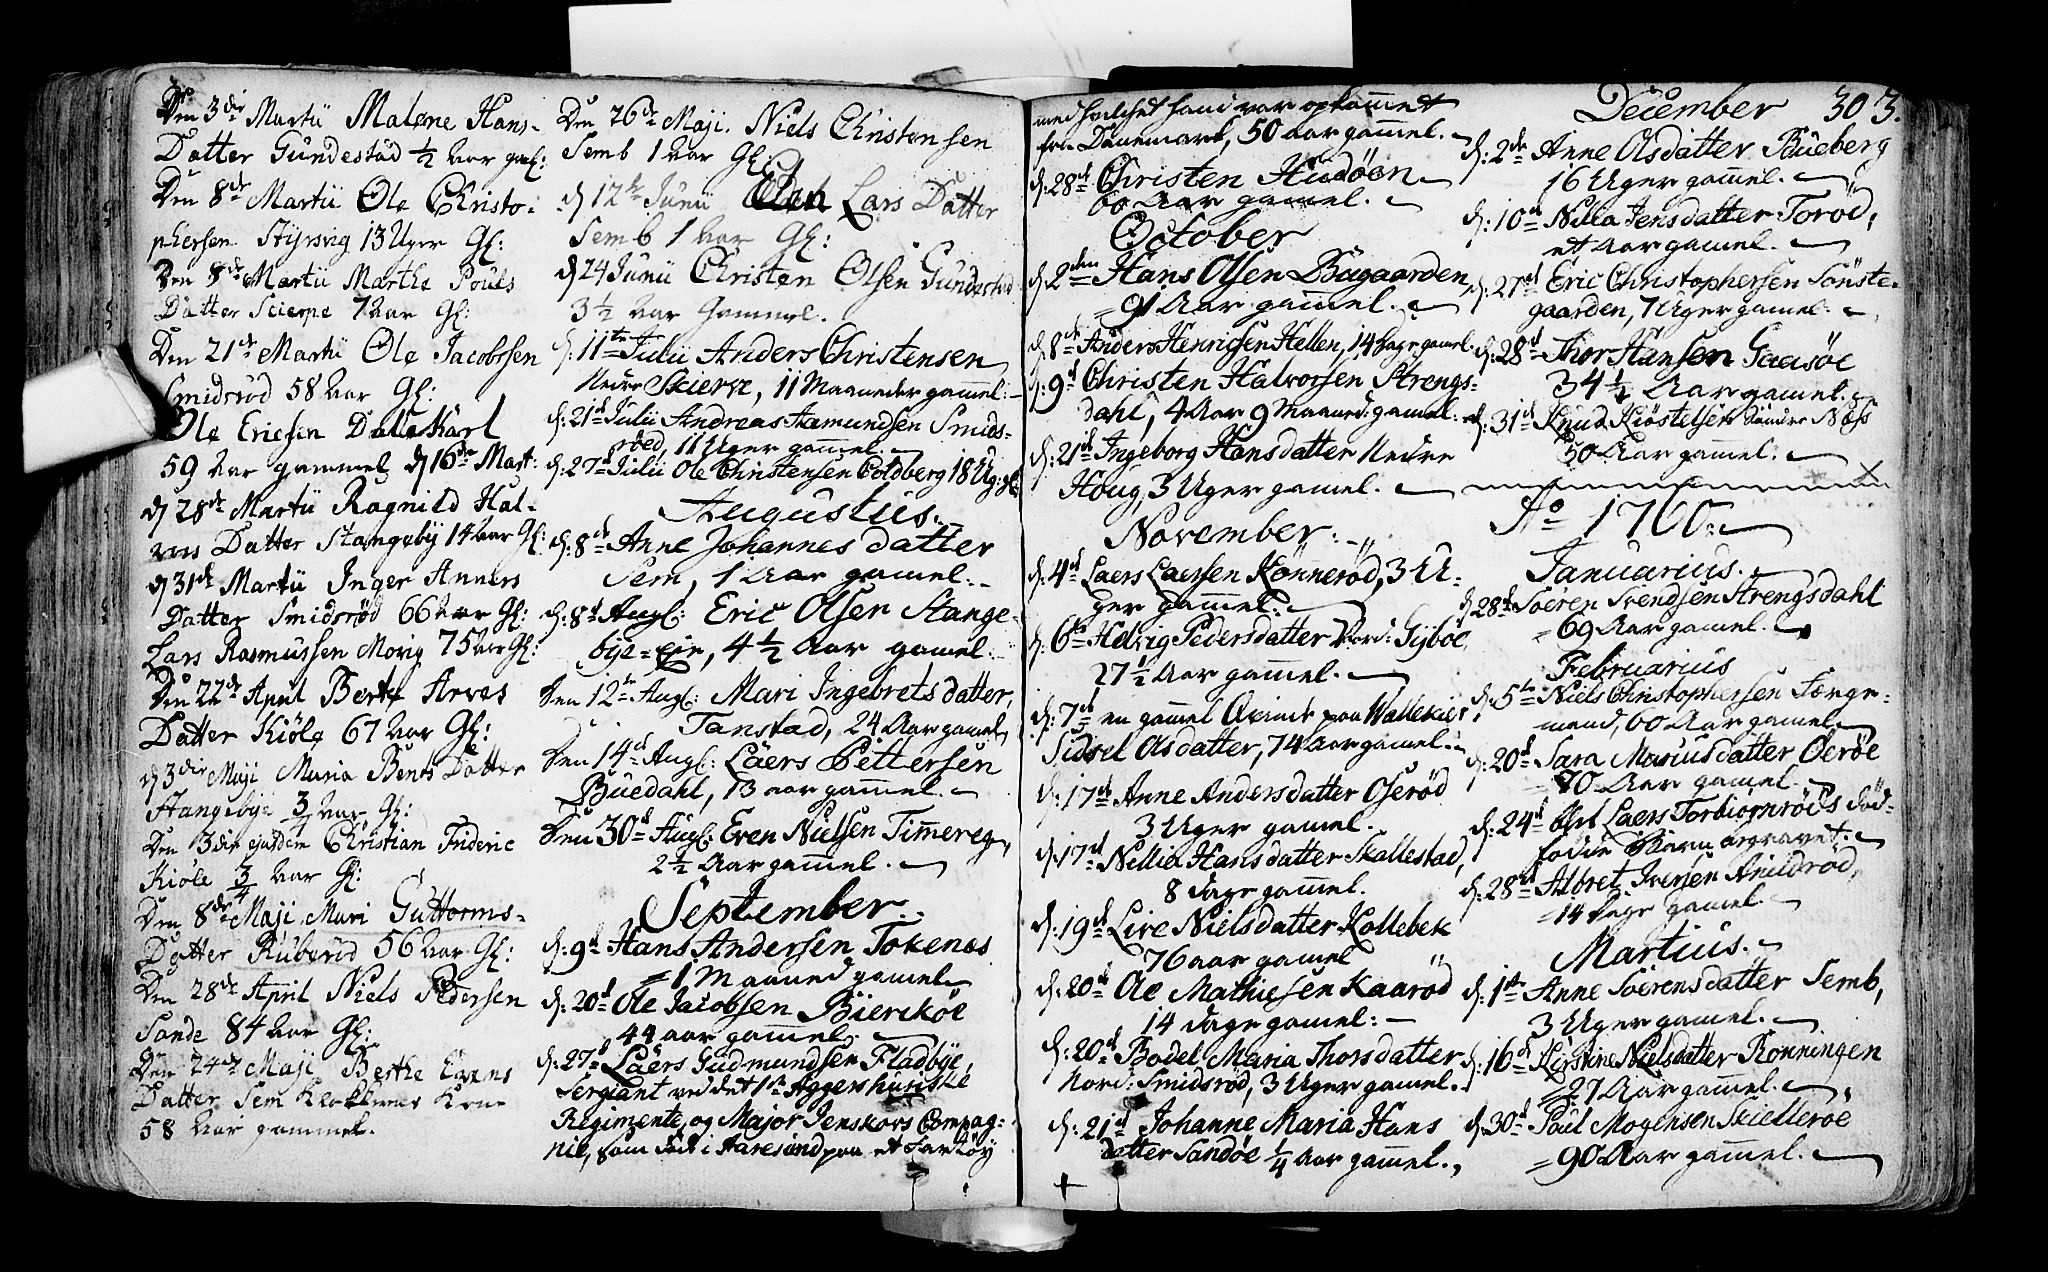 Den 3die Martii Malene Hans-
Datter Gundestad ½ aar gl:
Den 8de Martii Ole Christo-
phersen Styrsvig 13 Uger Gl:
Den 8de Martii Marthe Pouls
Datter Scierpe 7 aar Gl:
Den 21de Martii Ole Jacobssen
Smidsrød 58 aar Gl:
Ole Ericsen DalleKarl
59 aar gammel d 16de Mart:
d 28de Martii Ragnild Hal-
vors Datter Stangeby 14 aar Gl:
d 31de Martii Inger Anners
Datter Smidsrød 66 aar Gl:
Lars Rasmussen Movig 75 aar Gl:
Den 22de April Berte Arves
Datter Kiøle 67 aar Gl:
d 3die Maji Maria Bents Datter
Stangebye ¾ aar Gl:
Den 3die ejusdem Christian Frideric
Kiøle ¾ aar Gl:
Den 8de Maji Mari Guttorms-
Datter Ruberød 56 aar Gl:
Den 28de April Niels Pedersen
Sande 84 aar Gl:
Den 24de Maji Berthe Evens
Datter Sem Klokkerens Kone
58 aar gammel.
Den 26de Maji. Niels Christensen
Semb 1 aar Gl:
d 12te Junii Lars Datter
Semb 1 aar Gl:
d 24 Junii Christen Olsen Gundestad
3 ½ aar Gammel.
d: 11te Julii Anders Christensen
Nedre Skierve, 11 Maaneder gammel:
d: 21de Julii Andreas Asmundsen Smids-
røed, 11 Uger gammel:
d: 27de Julii Ole Christensen Goldberg 18 Ug: gl:
Augustus.
d: 8de Anne Johannes datter
Sem, 1 Aar gamel:
d: 8d Aug: Eric Olsen Stange-
bye=eie, 4 ½ Aar gamel.
Den 12te Aug: Mari Ingebrets datter,
Tanstad, 24 Aar gamel,
Den 14d Aug: Laers Pettersen
Buedahl, 13 aar gammel.
Den 30d Aug: Even Nielsen Timmereg,
2 ½ Aar gammel.
September.
d: 9d Hans Andersen Tokenes
1 Maaned gamel,
d: 20d Ole Jacobsen Bierkøe
44 aar gammel.
d: 27d Laers Gudmundsen Fladbye,
Sergiant ved det 1te Aggershusiske
Regimente, og Major Jenskovs Compag-
nie, som døde i Haresund paa et Fartøy
med hvilket hand var opkommet
fra Danemark, 50 aar gammel.
d: 28d Christen Hudøen
60 Aar gamel.
October
d. 2den Hans Olsen Bugaarden,
91 Aar gammel.
d. 8de Anders Henricsen Hellen, 14 Dage gamel.
d: 9d Christen Halvorsen Strengs-
dahl, 4 Aar 9 Maaned: gamel.
d: 21d Ingeborg Hansdatter Nedre
Houg, 3 Uger gamel.
November.
d: 4d Laers Laersen Rønnerød, 3 U-
ger gammel.
d: 6te Helvig Pedersdatter Nord: Gipøe,
27 ½ Aar gammel.
d: 7d en gammel Qvinde paa Wallekier
Sidsel Olsdatter, 74 Aar gamel.
d: 17de Anne Andersdatter Oserød
3 Uger gamel.
d. 17d Nellia Hansdatter Skallestad,
8 Dage gammel.
d: 19de Live Nielsdatter Kollebek
76 aar gamel
d: 20de Ole Mathiesen Kaarød
14 Dage gamel:
d: 20d Bodel Maria Thorsdatter
Nord: Smidsrød, 3 Uger gamel.
d: 21d Johanne Maria Hans
datter Sandøe ¼ Aar gammel.
December 303.
d: 2de Anne Olsdatter Bueberg
16 Uger gammel.
d: 10de Nillia Jensdatter Torød,
et Aar gamel.
d: 27d Eric Christophersen Sønste-
gaarden, 7 Uger gamel.
d: 28d Thor Hansen Gaasøe
34 ½ Aar gamel.
d: 31d Knud Kiøstelsen Søndre Næss
50 Aar gamel.
Ao 1760.
Januarius.
d 28de Søeren Svendsen Strengsdahl
69 Aar gamel.
Februarius
d: 5te Niels Christophersen Færge-
mand, 60 Aar gamel
d: 20d Sara Mariusdatter Oerøe
70 Aar gamel
d: 24d blev Laers Torbiørnrøds død-
fødde Barn begravet.
d: 28d Albret Iversen Arildrød,
14 Dage gamel.
Martius.
d: 1ste Anne Soerensdatter Semb,
3 Uger gamel.
d: 16de Kirstine Nielsdatter Rønningen
27 Aar gammel.
d: 30d Poul Mogensen Skiellerøe
90 Aar gammel.